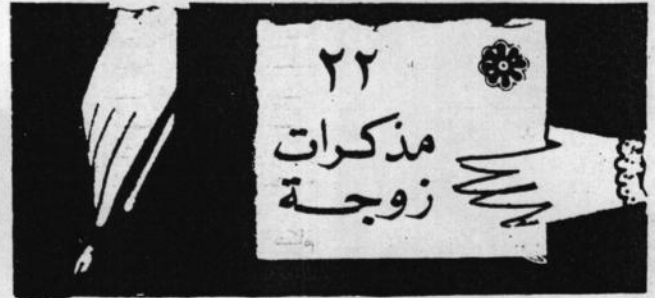 ٢٢
مذكرات
زوجــة